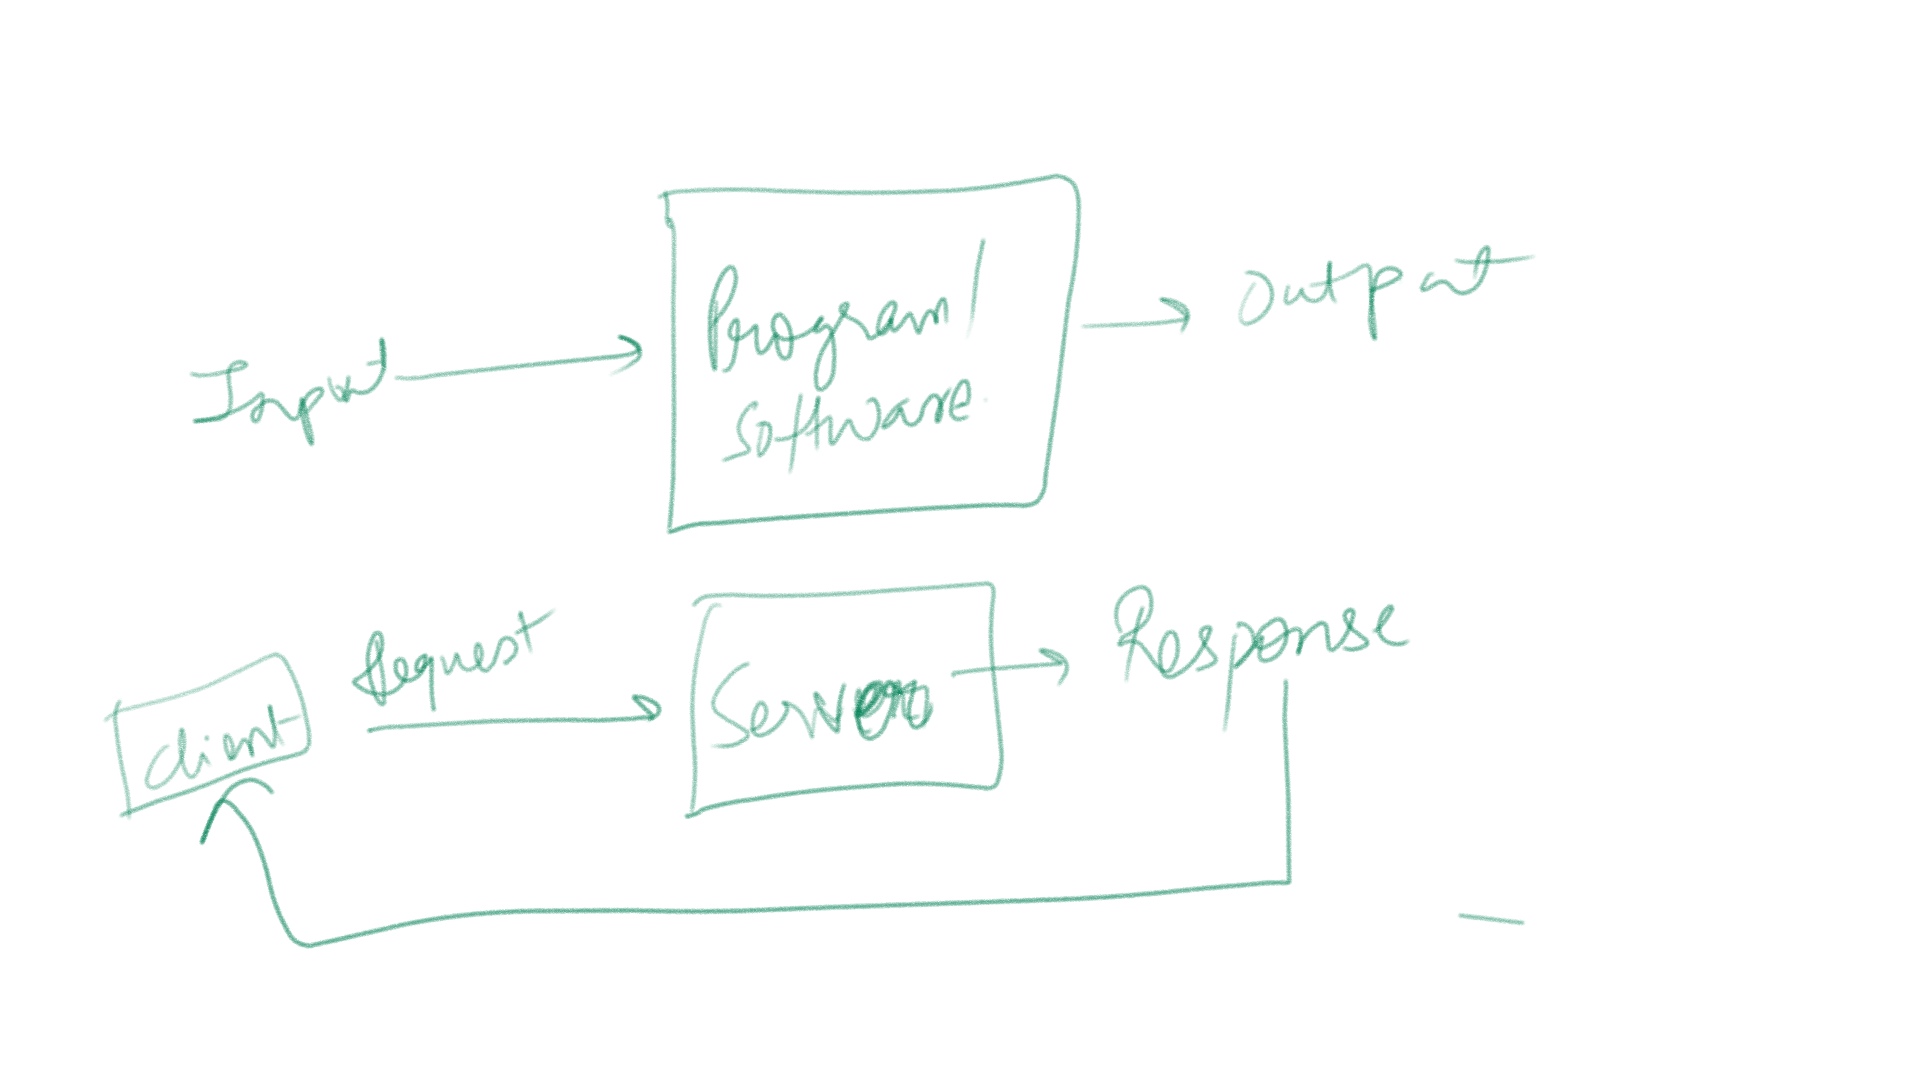 Input
Program/
Software
Output
Client
Request
Server
Response